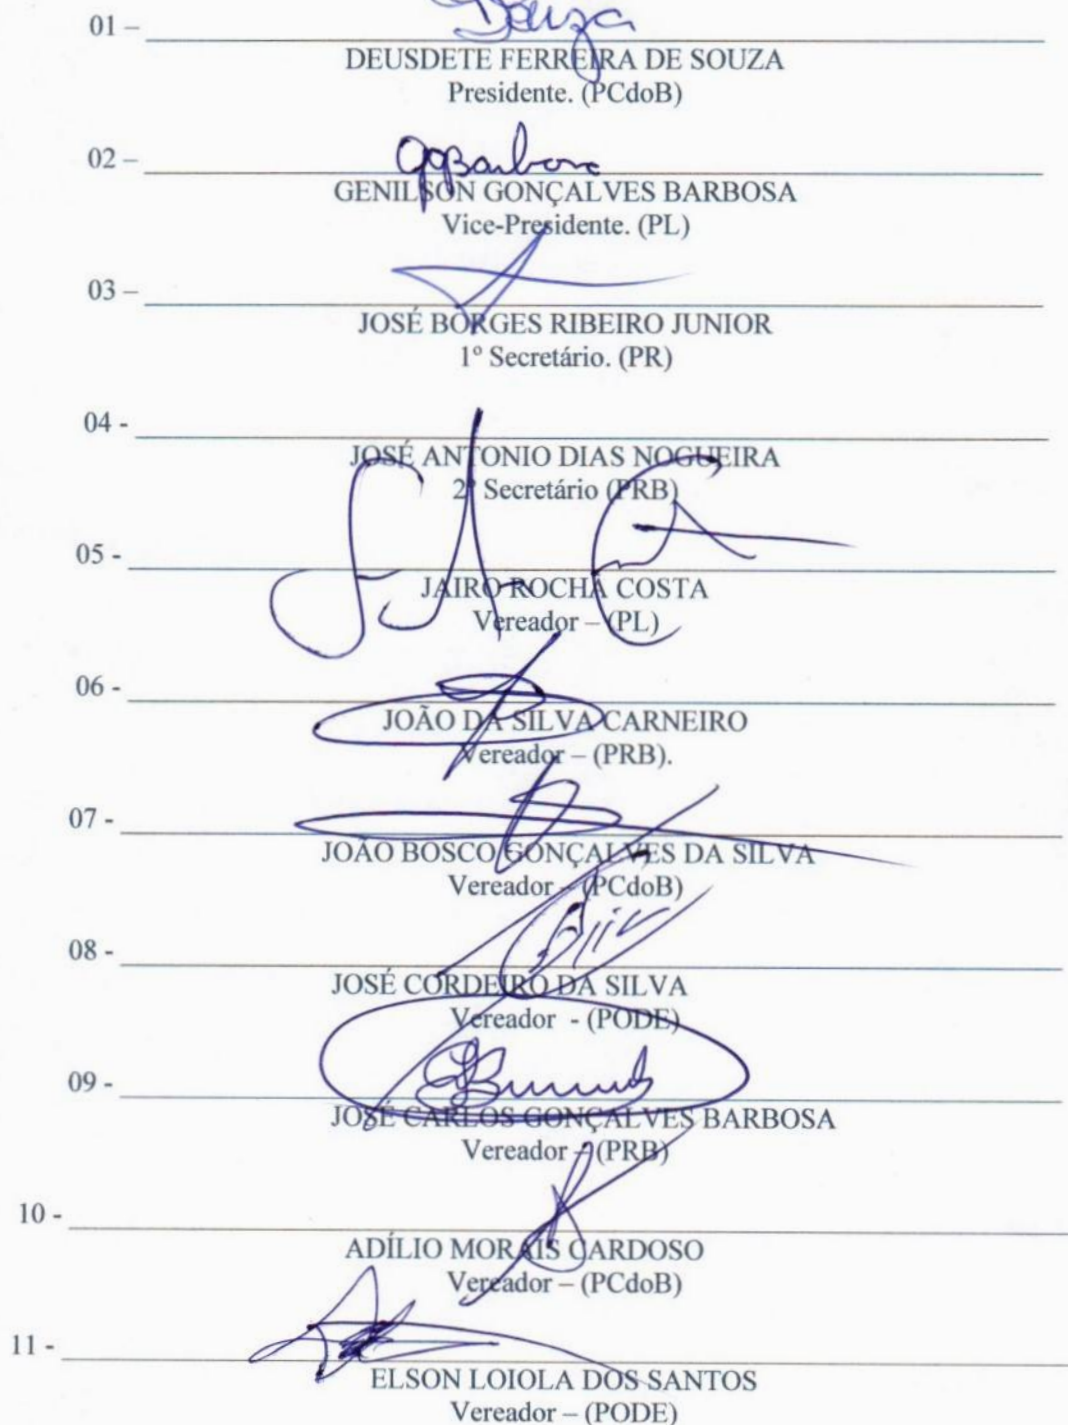 Souza
01 –
DEUSDETE FERREIRA DE SOUZA
Presidente. (PCdoB)
02 –
GENILSON GONÇALVES BARBOSA
Vice-Presidente. (PL)
03 –
JOSÉ BORGES RIBEIRO JUNIOR
1º Secretário. (PR)
04 -
JOSÉ ANTONIO DIAS NOGUEIRA
2º Secretário (PRB)
05 -
JAIRO ROCHA COSTA
Vereador – (PL)
06 -
JOÃO DA SILVA CARNEIRO
Vereador – (PRB).
07 -
JOÃO BOSCO GONÇALVES DA SILVA
Vereador – (PCdoB)
08 -
JOSÉ CORDEIRO DA SILVA
Vereador - (PODE)
09 -
JOSÉ CARLOS GONÇALVES BARBOSA
Vereador – (PRB)
10 -
ADÍLIO MORAIS CARDOSO
Vereador – (PCdoB)
11 -
ELSON LOIOLA DOS SANTOS
Vereador – (PODE)